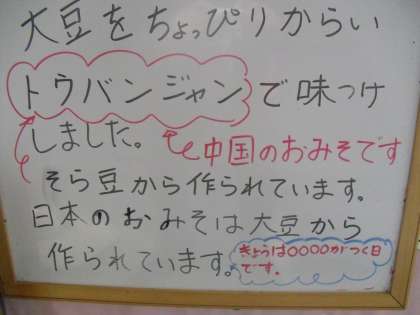 大豆をちょっぴりからい
トウバンジャンで味つけ
しました。
中国のおみそです
そら豆から作られています。
日本のおみそは大豆から
作られています。
きょうは〇〇〇〇がつく日
です。